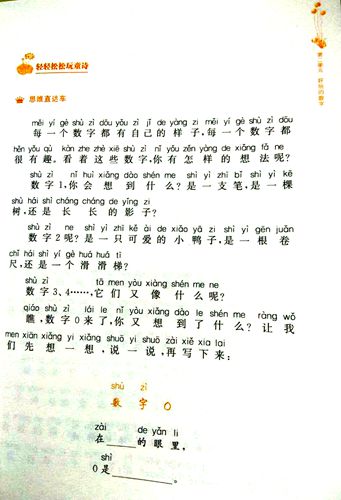 轻轻松松玩童诗
思维直达车
měi yí gè shù zì dōu yǒu zì jǐ de yàng zi měi yí gè shù zì dōu
每一个数字都有自己的样子,每一个数字都
hěn yǒu qù kàn zhe zhè xiē shù zì nǐ yǒu zěn yàng de xiǎng fǎ ne
很有趣。看着这些数字,你有怎样的想法呢?
shù zì nǐ huì xiǎng dào shén me shì yì zhī bǐ shì yì kē
数字1,你会想到什么?是一支笔,是一棵
shù hái shì cháng cháng de yǐng zi
树,还是长长的影子?
shù zì ne shì yì zhī kě ài de xiǎo yā zi shì yì gēn juǎn
数字2呢?是一只可爱的小鸭子,是一根卷
chǐ hái shì yí gè huá huá tī
尺,还是一个滑滑梯?
shù zì tā men yòu xiàng shén me ne
数字3、4……,它们又像什么呢?
qiáo shù zì lái le nǐ yòu xiǎng dào le shén me ràng wǒ
瞧,数字0来了,你又想到了什么?让我
men xiān xiǎng yi xiǎng shuō yi shuō zài xiě xia lai
们先想一想,说一说,再写下来:
shù zì
数字0
zài de yǎn li
在______的眼里,
shì
0是______。